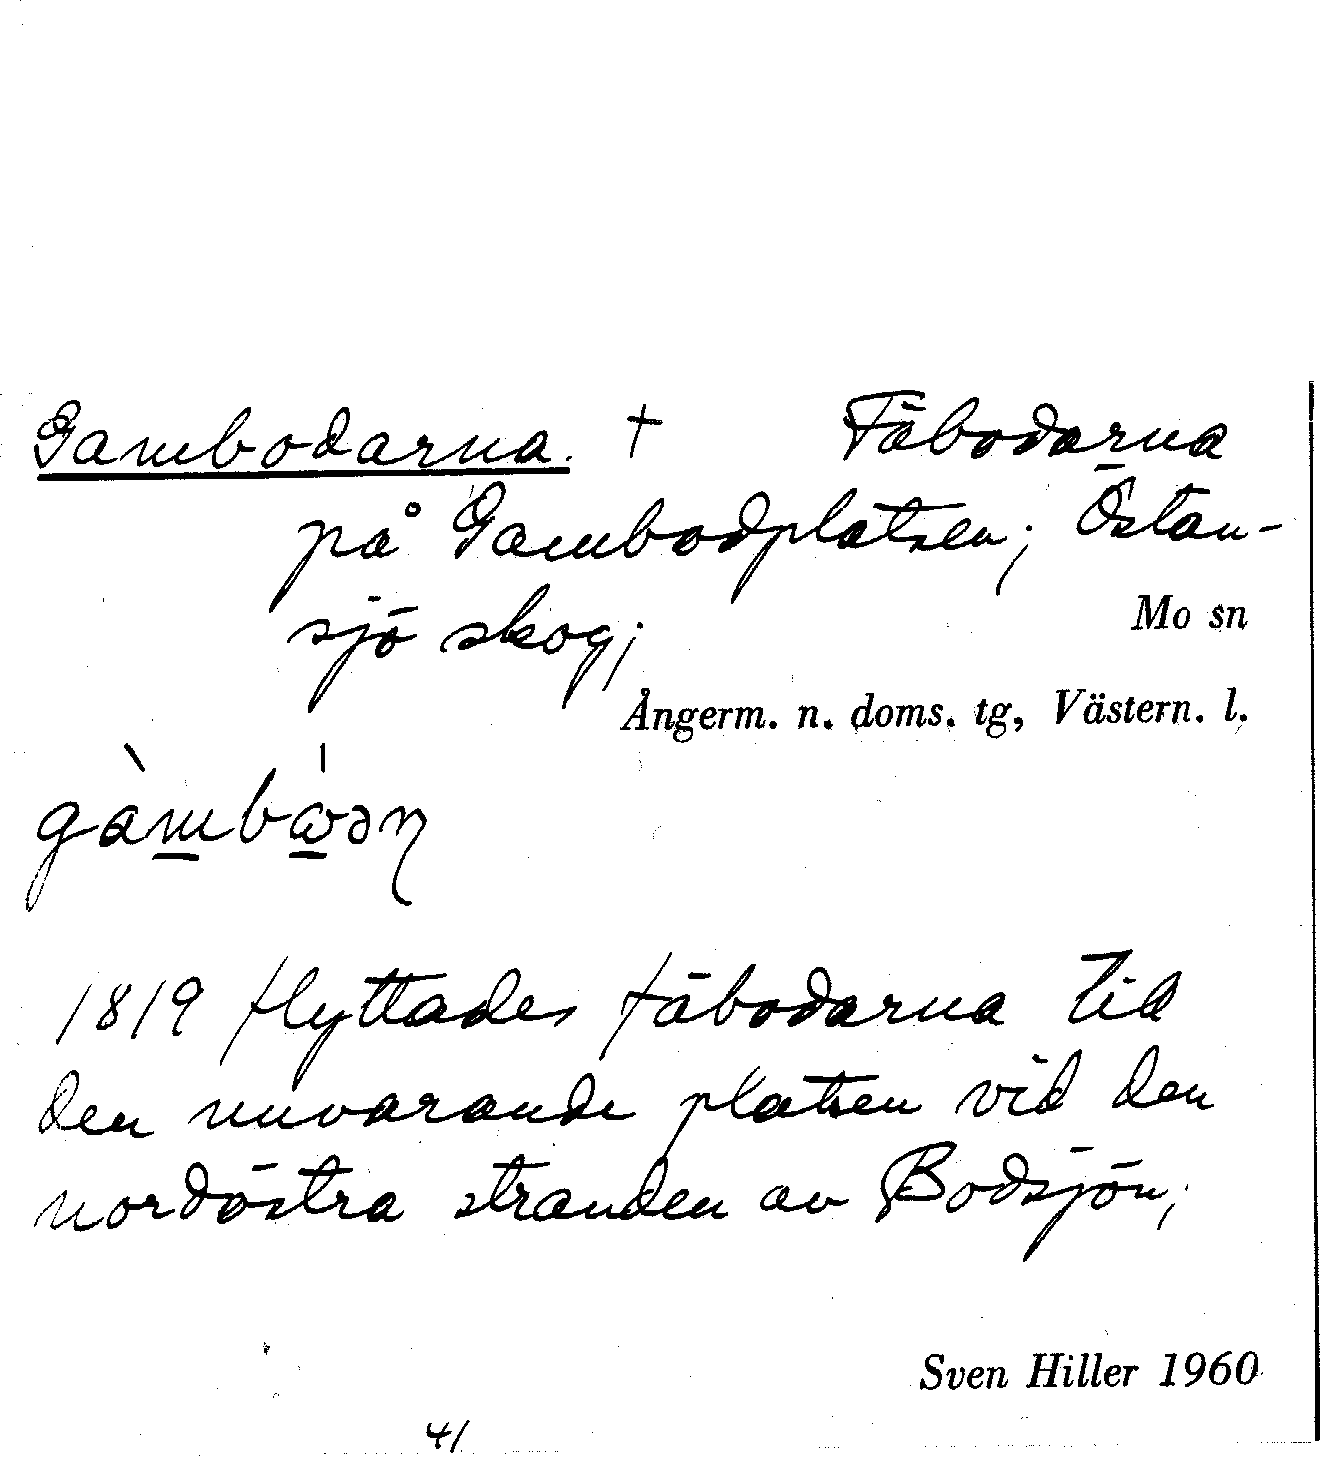 Gambodarna. † Fäbodarna
på Gambodplatsen; Östan-
sjö skog;
Mo sn
Ångerm. n. doms. tg, Västern. l.
1819 flyttades fäbodarna till
den nuvarande platsen vid den
nordöstra stranden av Bodsjön;
Sven Hiller 1960
41